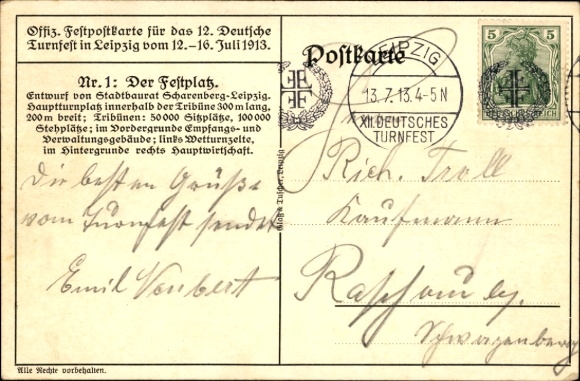 Offiz. Festpostkarte für das 12. Deutsche
Turnfest in Leipzig vom 12.-16. Juli 1913.
Nr. 1: Der Festplatz.
Entwurf von Stadtbaurat Scharenberg-Leipzig.
Hauptturnplatz innerhalb der Tribüne 300 m lang,
200 m breit; Tribünen: 50000 Sitzplätze, 100000
Stehplätze; im Vordergrunde Empfangs- und
Verwaltungsgebäude; links Wetturnzelte,
im Hintergrunde rechts Hauptwirtschaft.
Die besten Grüße
vom Turnfest sendet
Emil Neubert
Alle Rechte vorbehalten.
Postkarte
LEIPZIG
13.7.13.4-5N
XII.DEUTSCHES
TURNFEST
5 5
REICH
Rich. Troll
Kaufmann
Raschau b/
Schwarzenberg